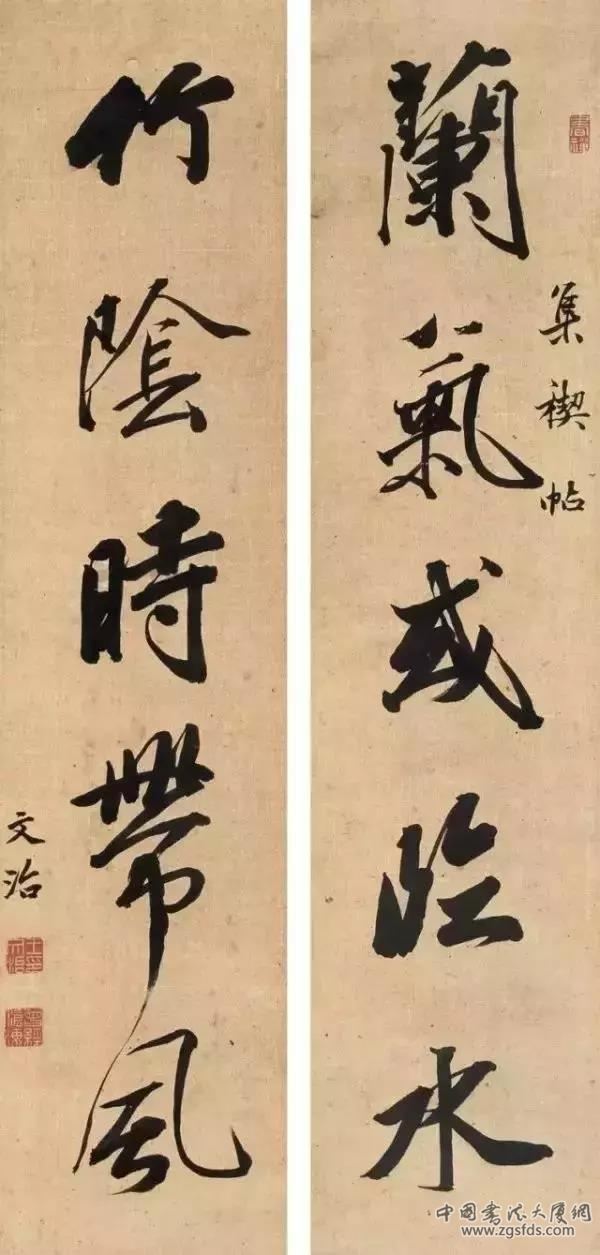 蘭氣或臨水
集禊帖
竹陰時帶風
文治
中國書法大廈網
www.zgsfds.com